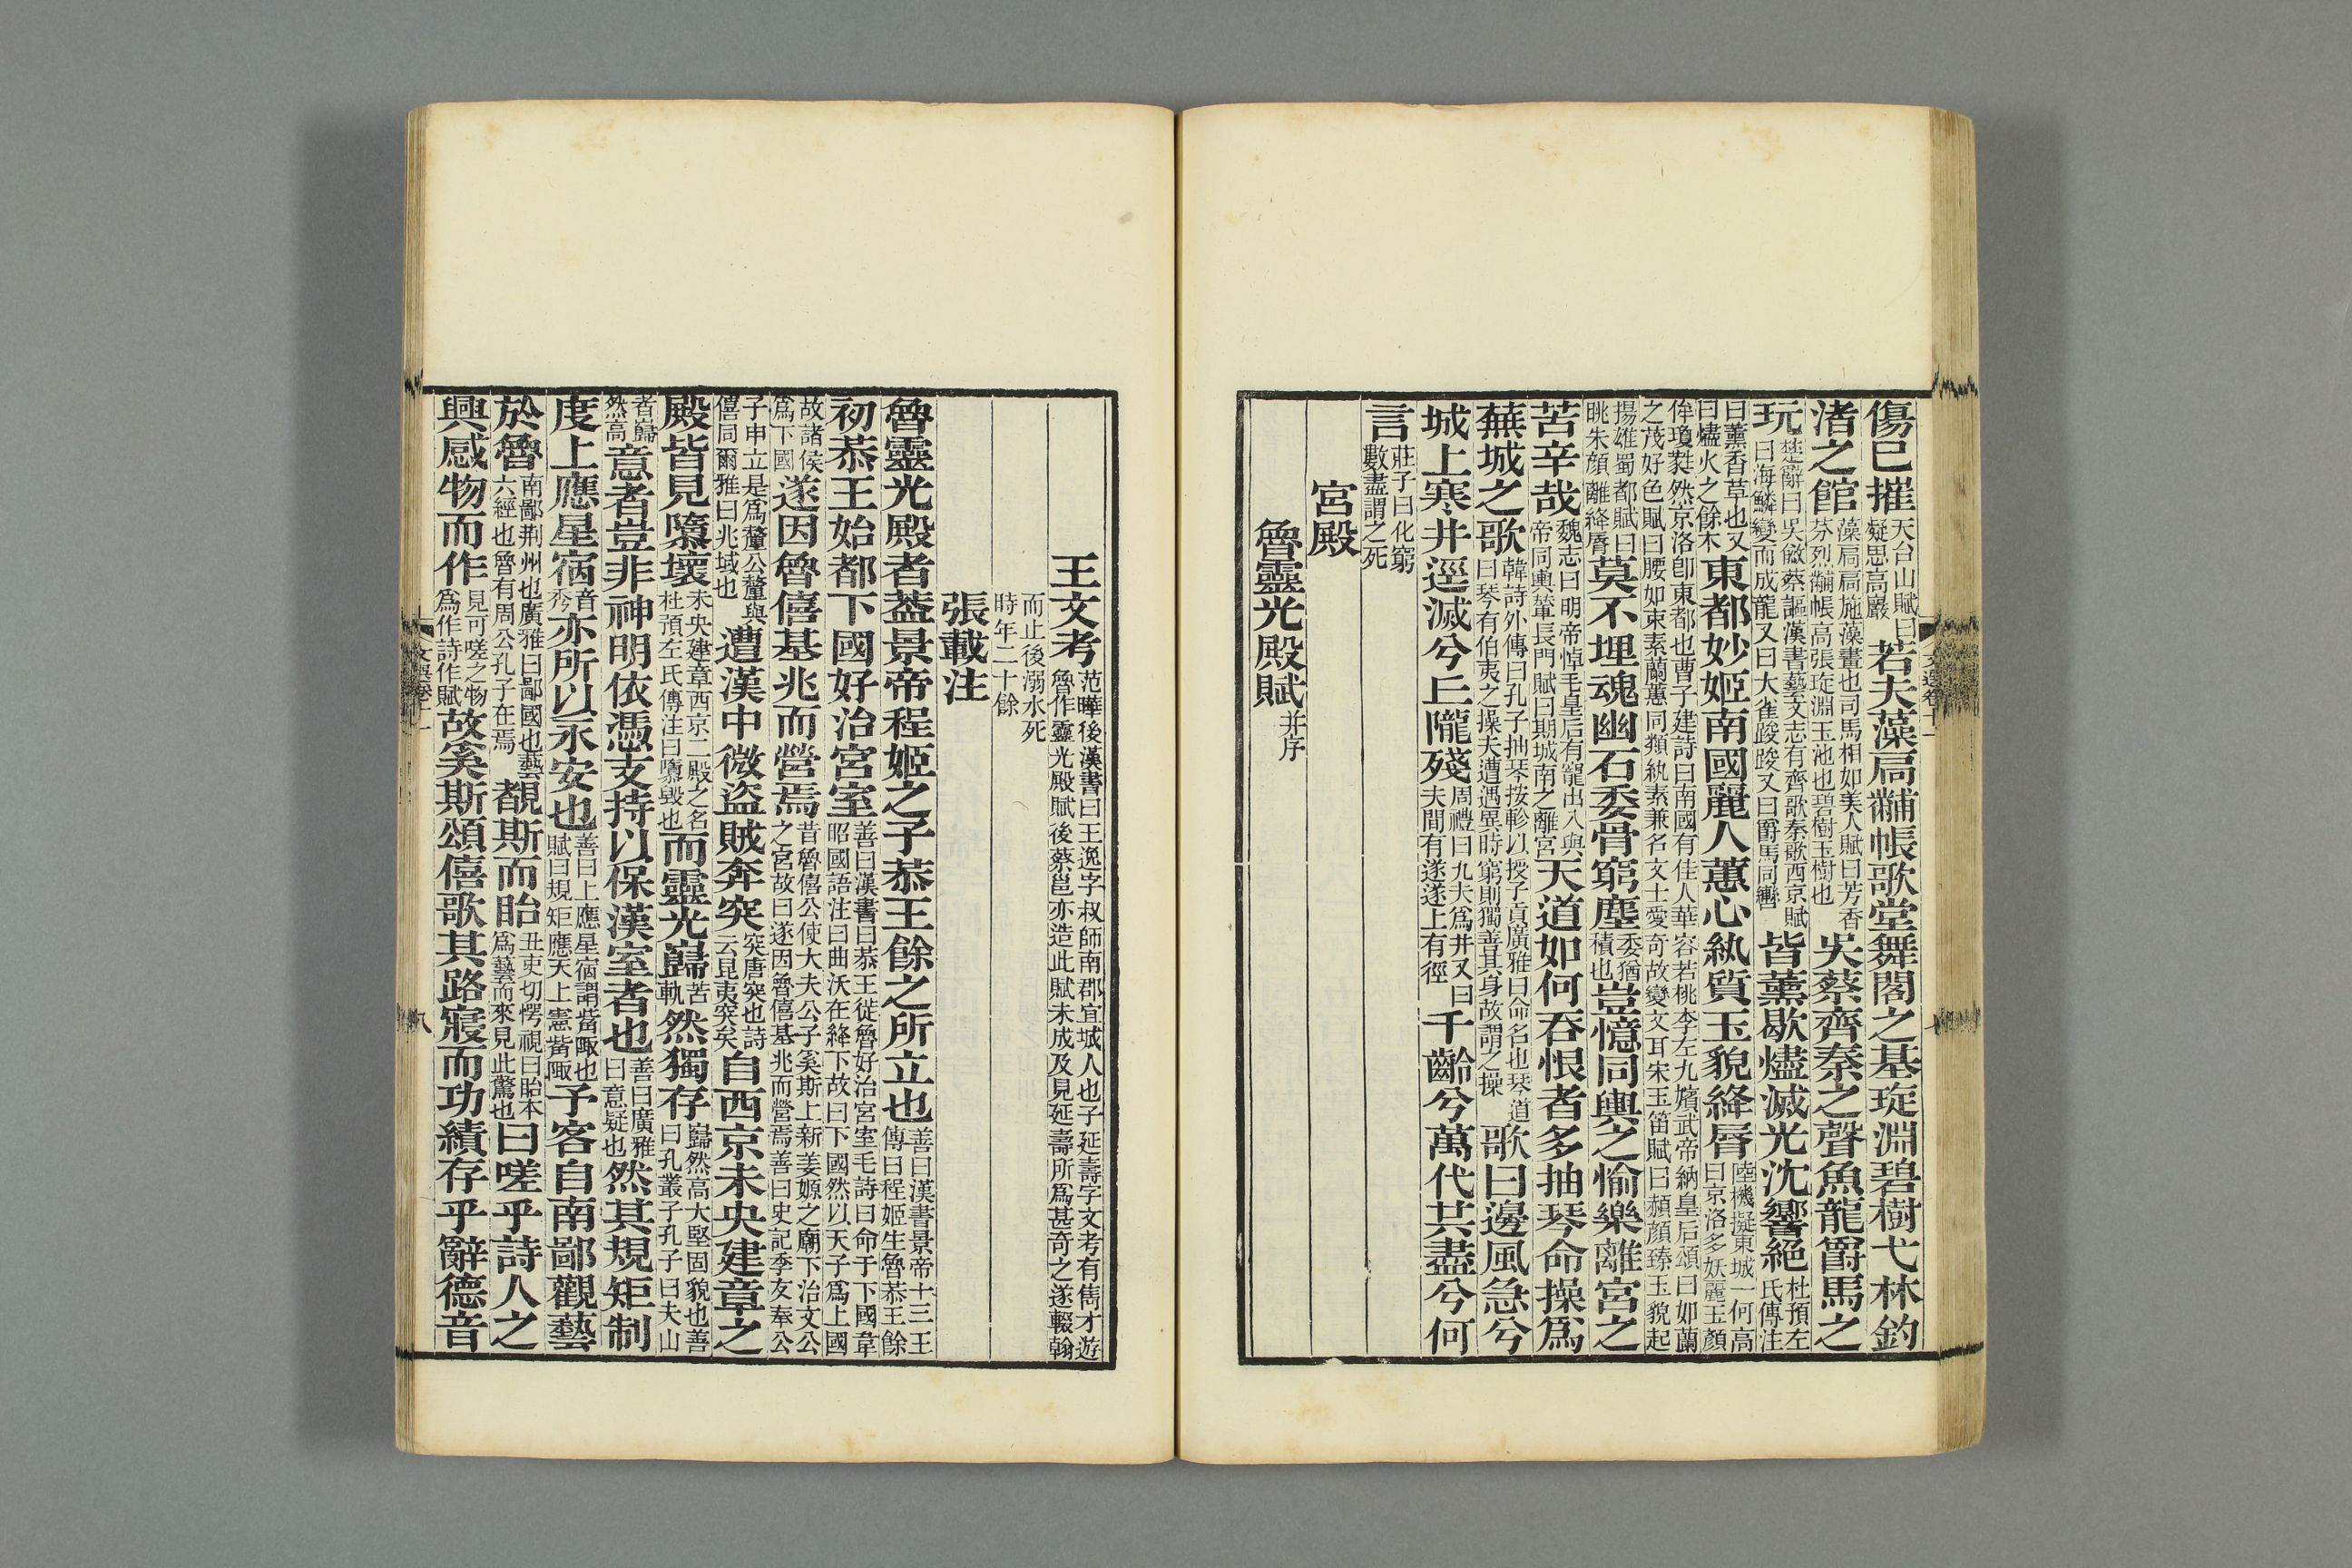 傷已摧天台山賦曰凝思高巖若夫藻扃黼帳歌堂舞閣之基琁淵碧樹弋林釣
渚之館藻扃扃施藻畫也司馬相如美人賦曰芳香芬烈黼帳高張琁淵玉池也碧樹玉樹也吳蔡齊秦之聲魚龍爵馬之
玩楚辭曰吳歈蔡謳漢書藝文志有齊歌秦歌西京賦曰海鱗變而成龍又曰大雀踆踆又曰爵馬同轡皆薰歇燼滅光沈響絕杜預左氏傳注
曰薰香草也又曰燼火之餘木東都妙姬南國麗人蕙心紈質玉貌絳脣陸機擬東城一何高曰京洛多妖麗玉顏
侔瓊蕤然京洛卽東都也曹子建詩曰南國有佳人華容若桃李左九嬪武帝納皇后頌曰如蘭之茂好色賦曰腰如束素蘭蕙同類紈素兼名文士愛奇故變文耳宋玉笛賦曰頳顏臻玉貌起
揚雄蜀都賦曰眺朱顏離絳脣莫不埋魂幽石委骨窮塵委猶積也豈憶同輿之愉樂離宮之
苦辛哉魏志曰明帝悼毛皇后有寵出入與帝同輿輦長門賦曰期城南之離宮天道如何吞恨者多抽琴命操爲
蕪城之歌韓詩外傳曰孔子抽琴按軫以授子貢廣雅曰命名也琴道曰琴有伯夷之操夫遭遇異時窮則獨善其身故謂之操歌曰邊風急兮
城上寒井逕滅兮丘隴殘周禮曰九夫爲井又曰夫間有遂遂上有徑千齡兮萬代共盡兮何
言莊子曰化窮數盡謂之死
宮殿
魯靈光殿賦并序
王文考范曄後漢書曰王逸字叔師南郡宜城人也子延壽字文考有雋才遊魯作靈光殿賦後蔡邕亦造此賦未成及見延壽所爲甚奇之遂輟翰
而止後溺水死時年二十餘
張載注
魯靈光殿者葢景帝程姬之子恭王餘之所立也善曰漢書景帝十三王傳曰程姬生魯恭王餘
初恭王始都下國好治宮室善曰漢書曰恭王徙魯好治宮室毛詩曰命于下國韋昭國語注曰曲沃在絳下故曰下國然以天子爲上國
故諸侯爲下國遂因魯僖基兆而營焉昔魯僖公使大夫公子奚斯上新姜嫄之廟下治文公之宮故曰遂因魯僖基兆而營焉善曰史記季友奉公
子申立是爲釐公釐與僖同爾雅曰兆域也遭漢中微盜賊奔突突唐突也詩云昆夷突矣自西京未央建章之
殿皆見隳壞未央建章西京二殿之名杜預左氏傳注曰隳毀也而靈光巋苦軌然獨存巋然高大堅固貌也善曰孔叢子孔子曰夫山
者巋然高意者豈非神明依憑支持以保漢室者也善曰廣雅曰意疑也然其規矩制
度上應星宿音秀亦所以永安也善曰上應星宿謂觜陬也賦曰規矩應天上憲觜陬予客自南鄙觀藝
於魯南鄙荆州也廣雅曰鄙國也藝六經也魯有周公孔子在焉覩斯而眙丑吏切愕視曰眙本爲藝而來見此驚也曰嗟乎詩人之
興感物而作見可嗟之物爲作詩作賦故奚斯頌僖歌其路寢而功績存乎辭德音
文選卷十一
九